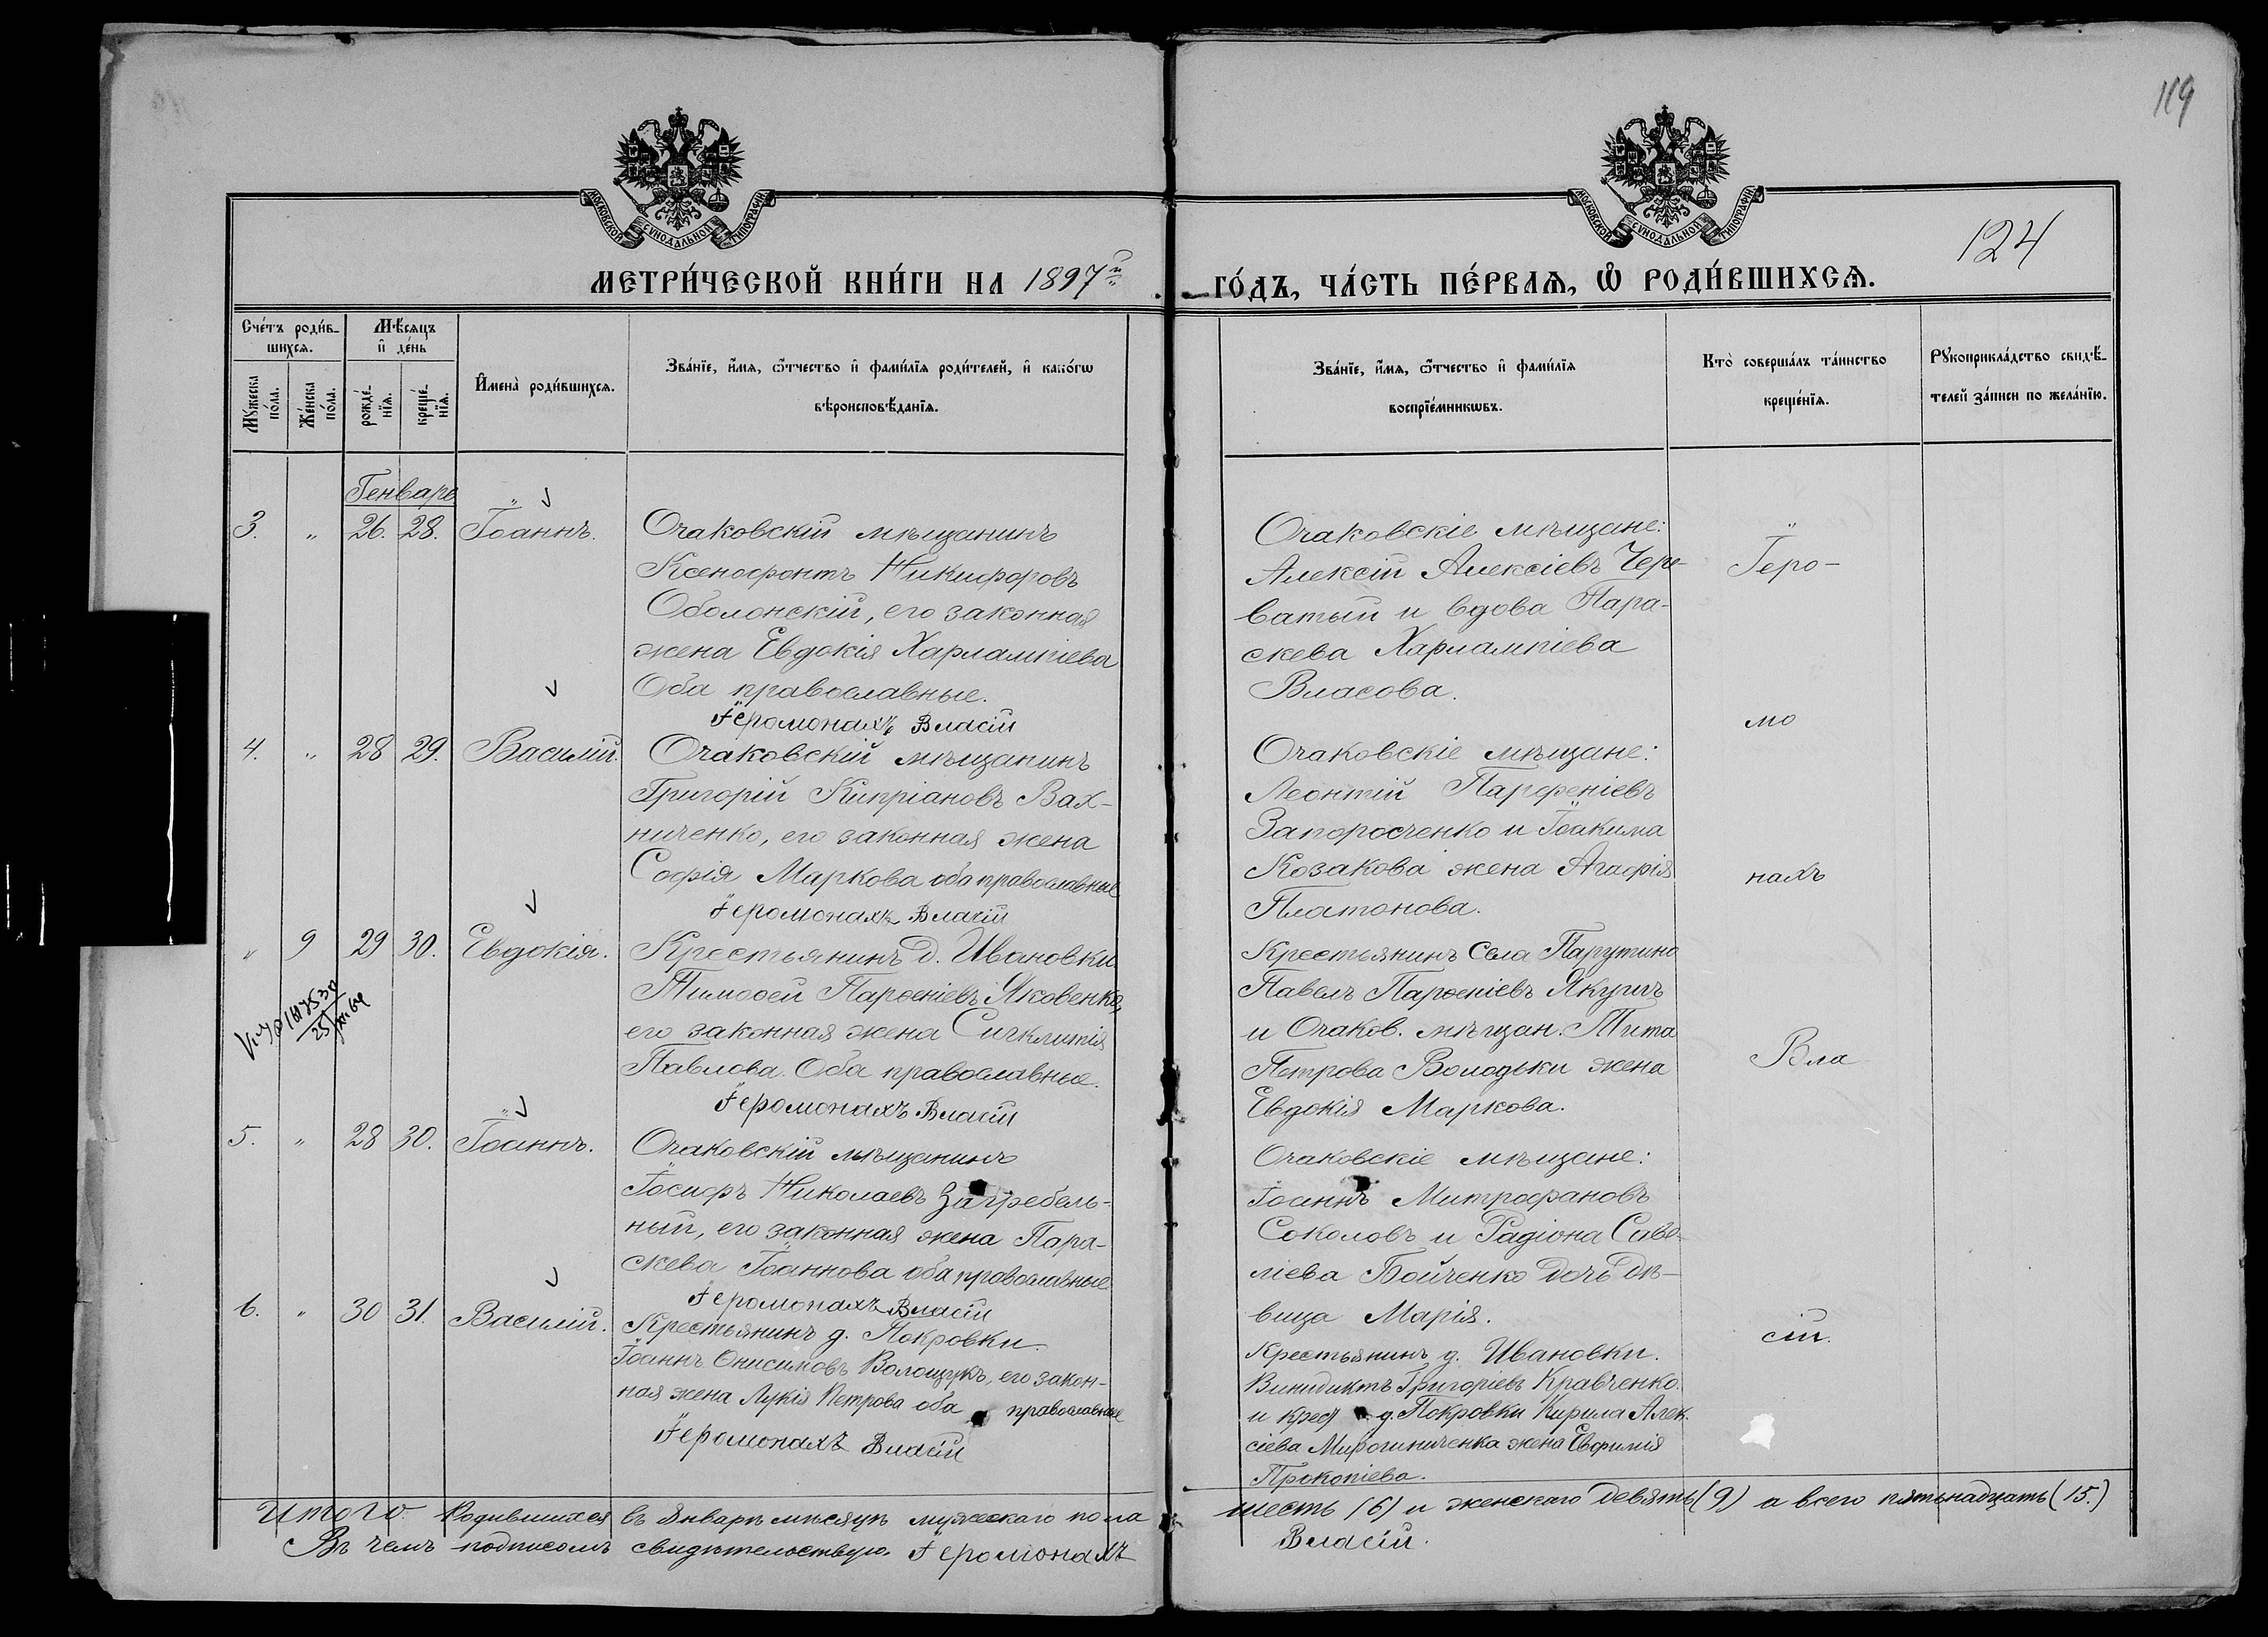 119
124
МОСКОВСКОЙ СѴНОДАЛЬНОЙ ТИПОГРАФІИ
МОСКОВСКОЙ СѴНОДАЛЬНОЙ ТИПОГРАФІИ
МЕТРИ́ЧЕСКОЙ КНИ́ГИ НА 1897й
ГО́ДЪ, ЧА́СТЬ ПЕ́РВАѦ, Ѡ҆ РОДИ́ВШИХСѦ.
Сче́тъ роди́в-
шихсѧ.
Мѣ́сѧцъ
и҆ де́нь
Мꙋ́жеска
по́ла.
Же́нска
по́ла.
рожде́-
нїѧ.
креще́-
нїѧ.
И҆мена̀ роди́вшихсѧ.
Зва́нїе, и҆́мѧ, ѻ҆́тчество и҆ фами́лїѧ роди́телей, и҆ како́гѡ
вѣроисповѣ́данїѧ.
Зва́нїе, и҆́мѧ, ѻ҆́тчество и҆ фами́лїѧ
воспрїе́мникѡвъ.
Кто̀ соверша́лъ та́инство
креще́нїѧ.
Рꙋкоприкла́дство свидѣ́-
телей за́писи по жела́нїю.
Генваре
3. " 26. 28. Іоаннъ.
Очаковскій мѣщанинъ
Ксенофонтъ Никифоровъ
Оболонскій, его законная
жена Евдокія Харлампіева
Оба православные.
Іеромонахъ Власій
Очаковскіе мѣщане:
Алексій Алексіевъ Чере-
ватый и вдова Пара-
скева Харлампіева
Власова.
Іеро-
4. " 28 29. Василій.
Очаковскій мѣщанинъ
Григорій Кипріановъ Вах-
ниченко, его законная жена
Софія Маркова оба православные
Іеромонахъ Власій
Очаковскіе мѣщане:
Леонтій Парфеніевъ
Запоросченко и Іоакима
Козакова жена Агафія
Платонова.
мо
нахъ
" 9 29 30. Евдокія.
Крестьянинъ д. Ивановки
Тимоѳей Парѳеніевъ Яковенко,
его законная жена Сичклитія
Павлова. Оба православные.
Іеромонахъ Власій
Крестьянинъ Села Парутино
Павелъ Парѳеніевъ Якушъ
и Очаков. мѣщан. Тита
Петрова Володьки жена
Евдокія Маркова.
Вла
5. " 28 30. Іоаннъ.
Очаковскій мѣщанинъ
Іосифъ Николаевъ Загребель-
ный, его законная жена Пара-
скева Іоаннова оба православные
Іеромонахъ Власій
Очаковскіе мѣщане:
Іоаннъ Митрофановъ
Соколовъ и Радіона Саве-
ліева Бойченко дочь дѣ-
вица Марія.
6. " 30 31. Василій.
Крестьянинъ д. Покровки
Іоаннъ Онисимовъ Волощукъ, его закон-
ная жена Лукія Петрова оба православные
Іеромонахъ Власій
Крестьянинъ д. Ивановки.
Винидиктъ Григоріевъ Кравченко.
и крест д. Покровки Кирила Алек-
сіева жена Евфимія
Прокопіева.
сій.
Итого Родившихся въ Январѣ мѣсяцѣ мужескаго пола
шесть (6) и женскаго девять (9) а всего пятьнадцать (15.)
Въ чемъ подписомъ свидѣтельствую. Іеромонахъ
Власій.